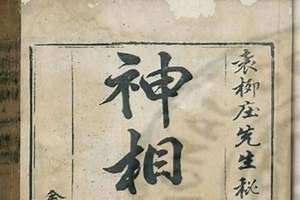 袁柳庄先生秘
神相